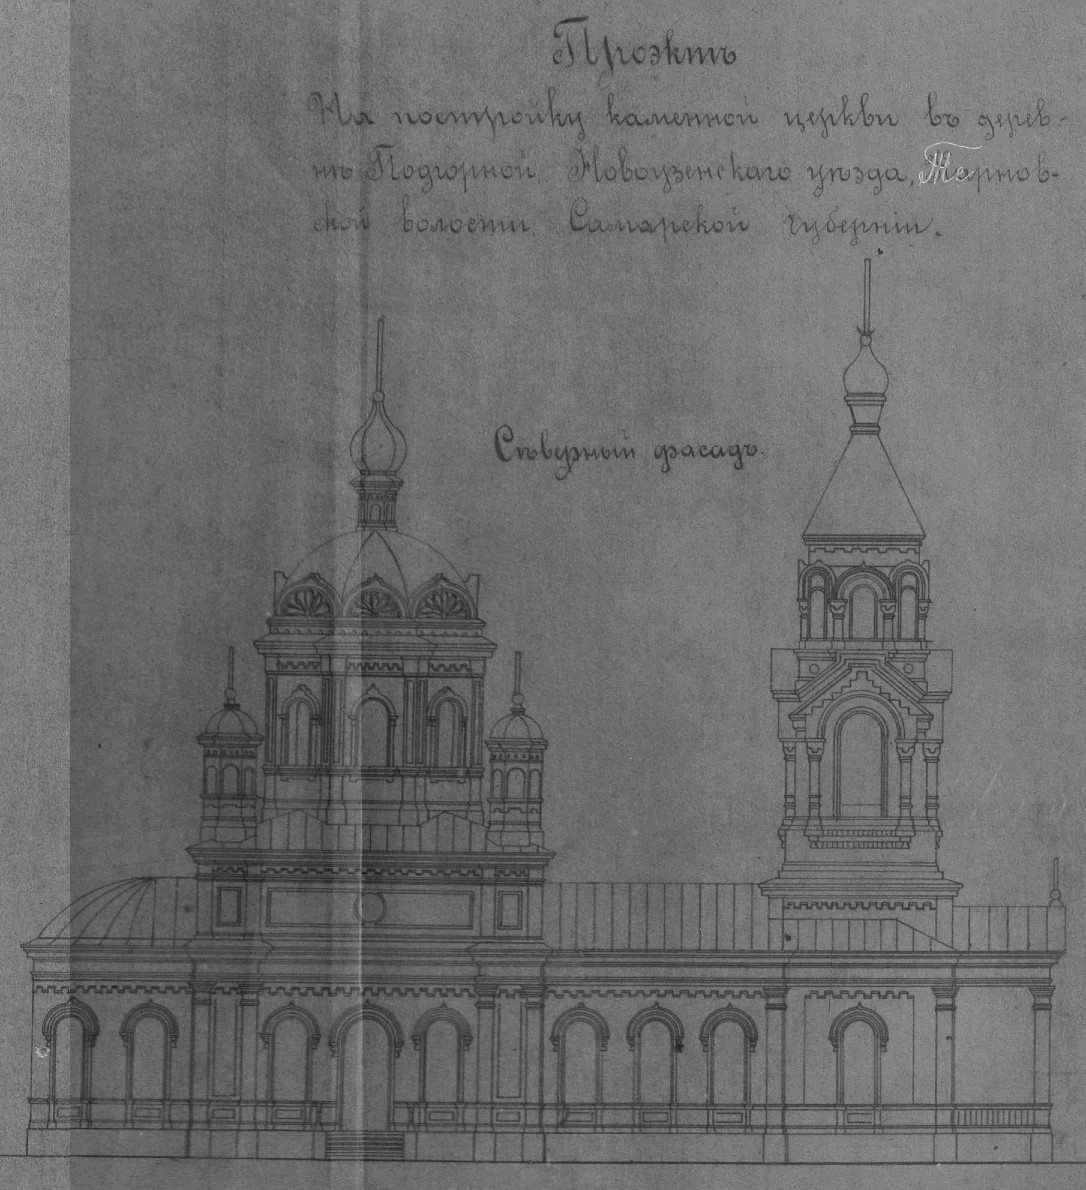 Проэктъ
На постройку каменной церкви въ дерев-
нѣ Подгорной, Новоузенскаго уѣзда, Тарнов-
ской волости, Самарской губерніи.
Сѣверный фасадъ.